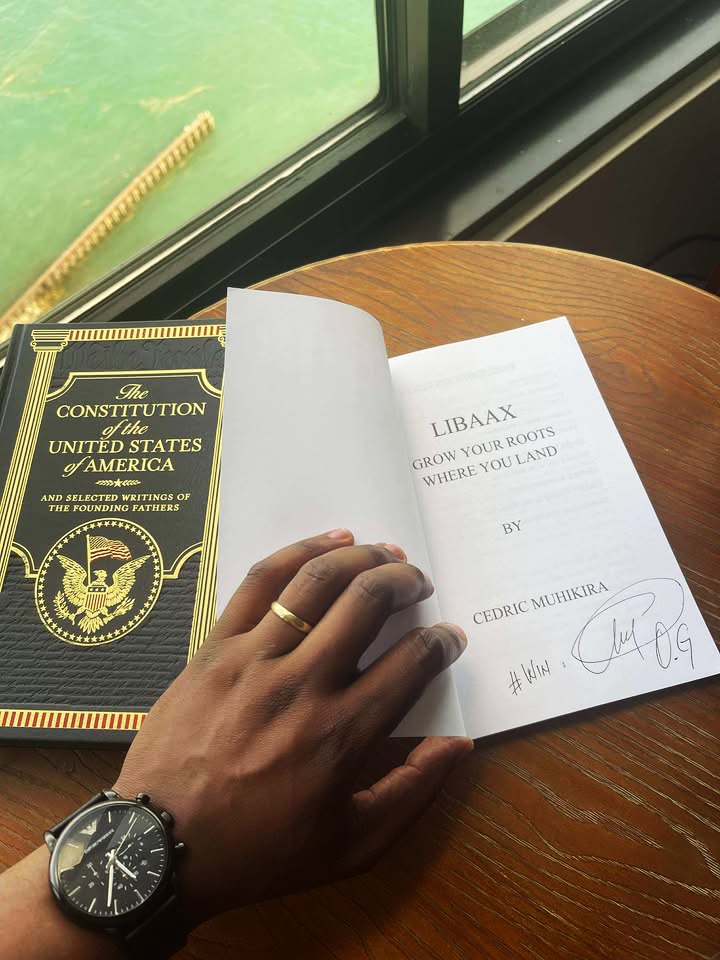 The
CONSTITUTION
of the
UNITED STATES
of AMERICA
AND SELECTED WRITINGS OF
THE FOUNDING FATHERS
LIBAAX
GROW YOUR ROOTS
WHERE YOU LAND
BY
CEDRIC MUHIKIRA
#WIN
O.G
EMPORIO ARMANI